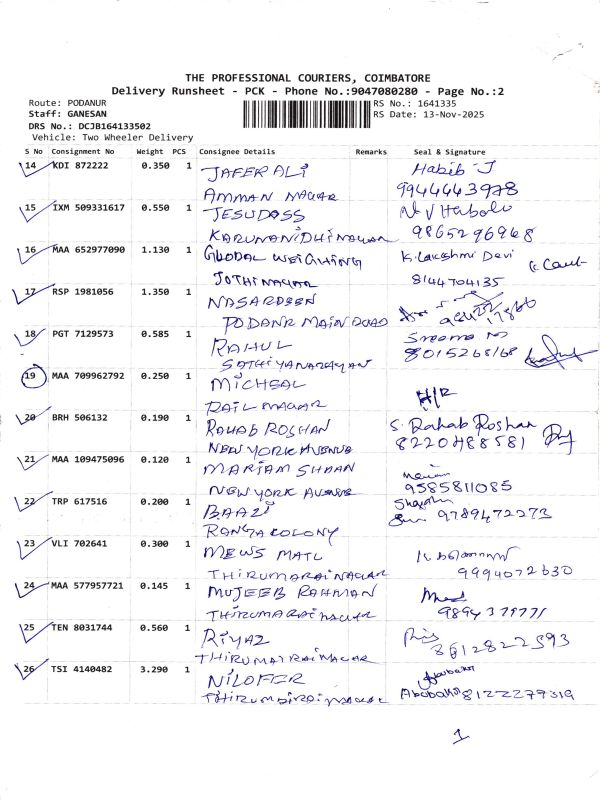 THE PROFESSIONAL COURIERS, COIMBATORE
Delivery Runsheet - PCK - Phone No.:9047080280 - Page No.:2
Route: PODANUR RS No.: 1641335
Staff: GANESAN RS Date: 13-Nov-2025
DRS No.: DCJB164133502
Vehicle: Two Wheeler Delivery
S No Consignment No Weight PCS Consignee Details Remarks Seal & Signature
14 KDI 872222 0.350 1 JAFER ALI Habib J
AMMAN NAGAR 9944443978
15 IXM 509331617 0.550 1 JESUDOSS
KARUNANIDHINAGAR 9865296968
16 MAA 652977090 1.130 1 GLOBAL WEIGHING K. Lakshmi Devi
JOTHINAGAR 8144704135
17 RSP 1981056 1.350 1 NASARDEEN
PODANR MAIN ROAD
18 PGT 7129573 0.585 1 RAHUL
SATHIYANARAYAN 8015268168
19 MAA 709962792 0.250 1 MICHEAL
RAIL NAGAR H/R
20 BRH 506132 0.190 1 RAHAB ROSHAN S. Rahab Roshan
NEW YORK AVENUE 8220488581
21 MAA 109475096 0.120 1 MARIAM SHAAN
NEW YORK AVENUE 9585811085
22 TRP 617516 0.200 1 BAAZI
RANGA COLONY 9789472273
23 VLI 702641 0.300 1 MEWS MATL
THIRUMARAINAGAR 9994072630
24 MAA 577957721 0.145 1 MUJEEB RAHMAN
THIRUMARAINAGAR
25 TEN 8031744 0.560 1 RIYAZ
THIRUMARAINAGAR
26 TSI 4140482 3.290 1 NILOFER
THIRUMARAINAGAR 8122279319
1